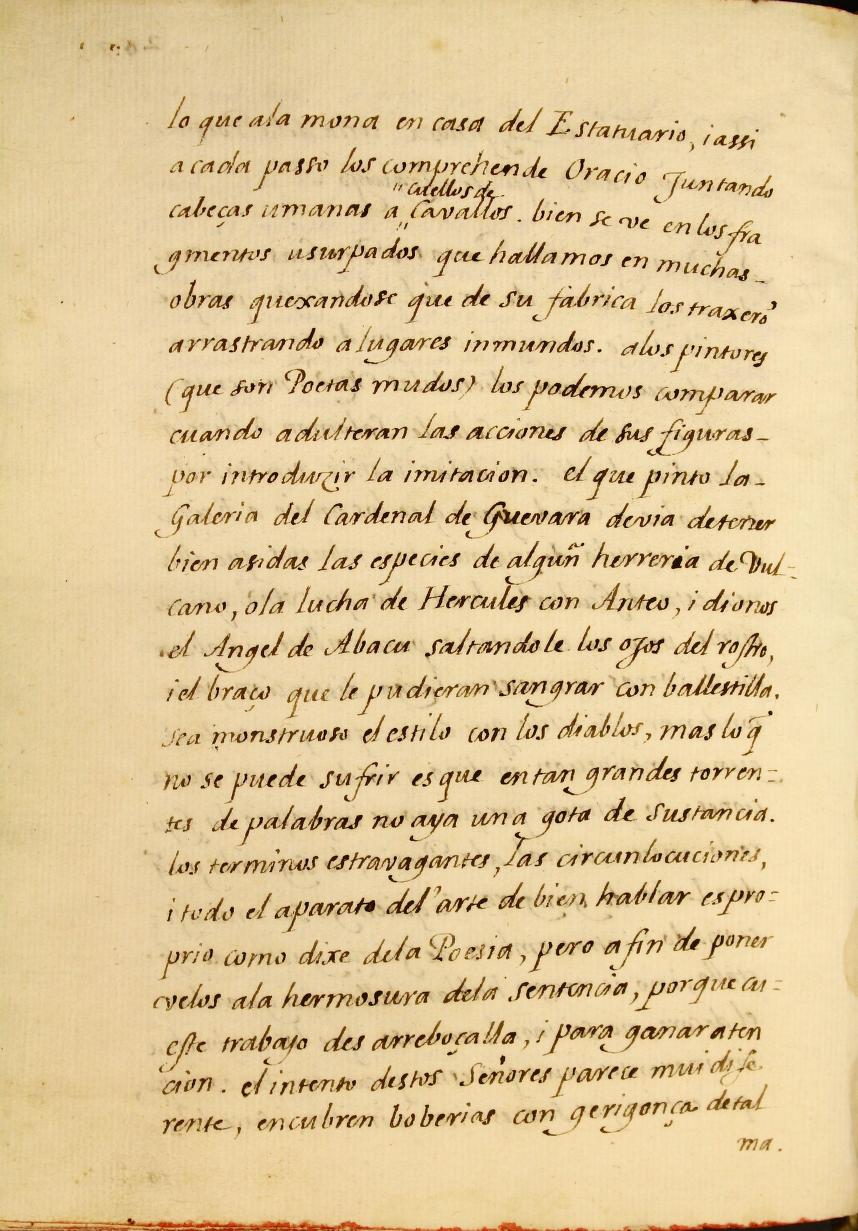 lo que ala mona en casa del Estatuario, i assi
a cada passo los comprehende Oracio Juntando
"cuellos de
cabeças umanas a" Cavallos. bien se ve en los fra
gmentos usurpados que hallamos en muchas_
obras quexandose que de su fabrica los traxerõ
arrastrando a lugares inmundos. alos pintores
(que son Poetas mudos) los podemos comparar
cuando adulteran las acciones de sus figuras_
por introduzir la imitacion. el que pinto la_
Galeria del Cardenal de Guevara devia de tener
bien asidas las especies de algun̄ herreria de Vul=
cano, o la lucha de Hercules con Anteo, i dionos
el Angel de Abacu saltandole los ojos del rostro,
i el braço que le pudieran sangrar con ballestilla.
sea monstruoso el estilo con los diablos, mas lo q̃
no se puede sufrir es que en tan grandes torren=
tes de palabras no aya una gota de sustancia.
los terminos estravagantes, las circunlocuciones,
i todo el aparato del'arte de bien hablar es pro=
prio como dixe dela Poesia, pero a fin de poner
velos ala hermosura dela sentencia, porque cu=
este trabajo des arreboçalla, i para ganar aten
cion. el intento destos Señores parece mui dife
rente, encubren boberias con gerigonça de tal
ma.